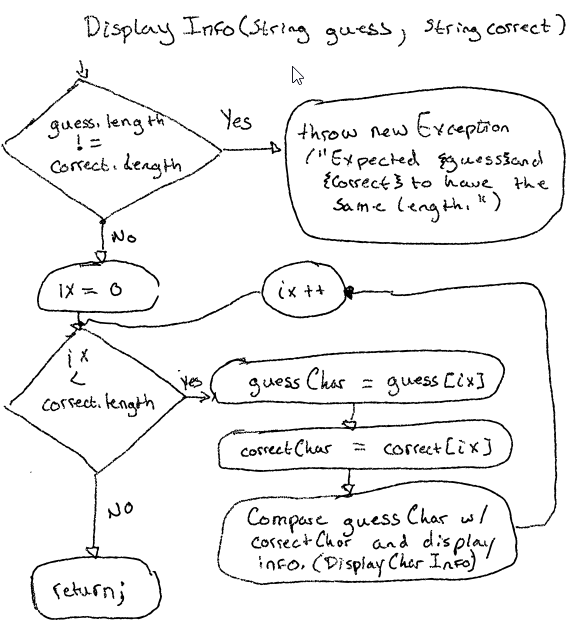 Display Info(String guess, String correct)
guess.length
!=
correct.length
Yes
throw new Exception
("Expected {guess} and
{correct} to have the
same length.")
No
ix = 0
ix ++
ix
<
correct.length
Yes
guessChar = guess[ix]
correctChar = correct[ix]
Compare guessChar w/
correctChar and display
info. (DisplayCharInfo)
NO
return;